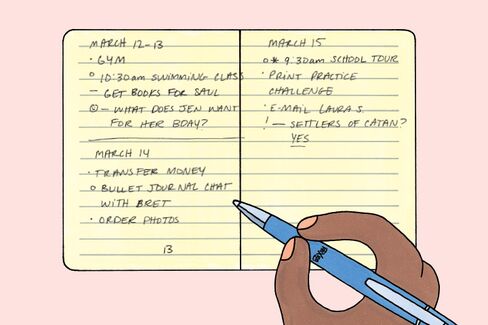 MARCH 12-13
· GYM
o 10:30am SWIMMING CLASS
— GET BOOKS FOR SAUL
— WHAT DOES JEN WANT
FOR HER BDAY?
MARCH 14
· TRANSFER MONEY
o BULLET JOURNAL CHAT
WITH BRET
· ORDER PHOTOS
13
MARCH 15
o* 9:30am SCHOOL TOUR
· PRINT PRACTICE
CHALLENGE
· E-MAIL LAURA S.
! — SETTLERS OF CATAN?
YES